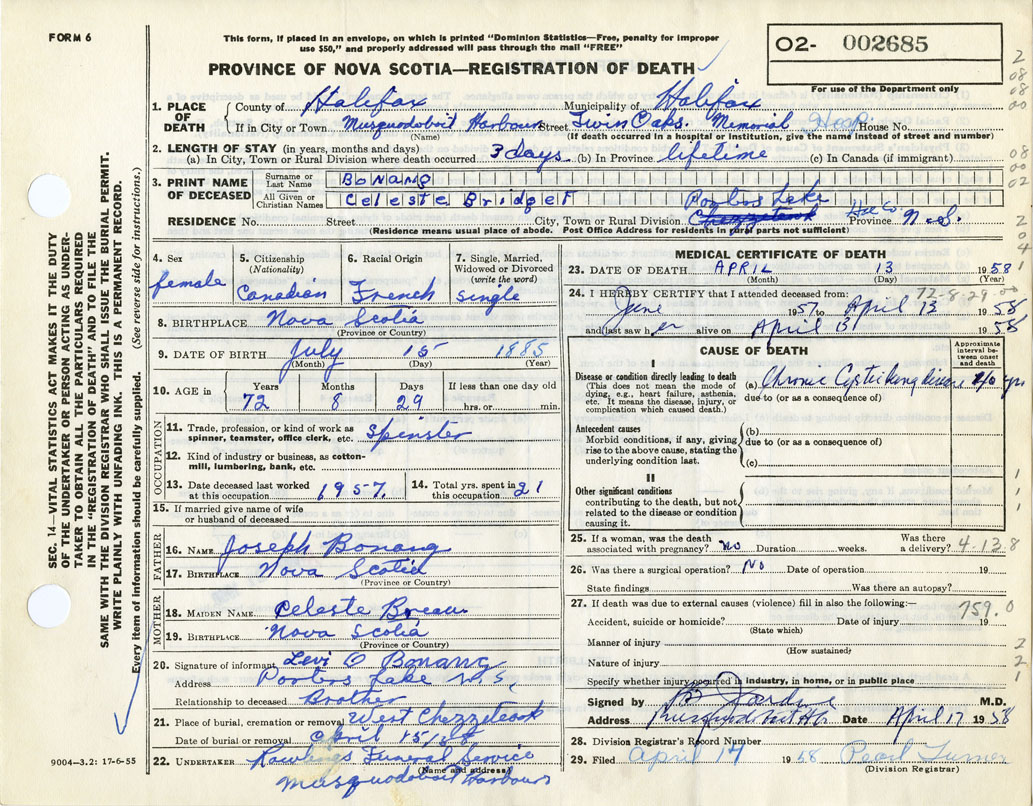 FORM 6
This form, if placed in an envelope, on which is printed "Dominion Statistics—Free, penalty for improper
use $50," and properly addressed will pass through the mail "FREE"
O2- 002685
PROVINCE OF NOVA SCOTIA—REGISTRATION OF DEATH
For use of the Department only
1. PLACE OF DEATH
County of Halifax Municipality of Halifax
If in City or Town Musquodoboit Harbour Street Twin Oaks Memorial Hosp. House No.
(Name) (If death occurred in a hospital or institution, give the name instead of street and number)
2. LENGTH OF STAY (in years, months and days)
(a) In City, Town or Rural Division where death occurred 3 days (b) In Province lifetime (c) In Canada (if immigrant)
3. PRINT NAME OF DECEASED
Surname or Last Name Bonang
All Given or Christian Names Celeste Bridget
Porters Lake Hfx Co
RESIDENCE No. Street City, Town or Rural Division Chezzetcook Province N.S.
(Residence means usual place of abode. Post Office Address for residents in rural parts not sufficient)
4. Sex
female
5. Citizenship
(Nationality)
Canadian
6. Racial Origin
French
7. Single, Married,
Widowed or Divorced
(write the word)
single
8. BIRTHPLACE Nova Scotia
(Province or Country)
9. DATE OF BIRTH July 15 1885
(Month) (Day) (Year)
10. AGE in
Years Months Days If less than one day old
72 8 29 hrs. or min.
OCCUPATION
11. Trade, profession, or kind of work as
spinner, teamster, office clerk, etc. Spinster
12. Kind of industry or business, as cotton-
mill, lumbering, bank, etc.
13. Date deceased last worked
at this occupation 1957.
14. Total yrs. spent in
this occupation 21
15. If married give name of wife
or husband of deceased
FATHER
16. NAME Joseph Bonang
17. BIRTHPLACE Nova Scotia
(Province or Country)
MOTHER
18. MAIDEN NAME Celeste Breau
19. BIRTHPLACE Nova Scotia
(Province or Country)
20. Signature of informant Levi O Bonang
Address Porters Lake N.S.
Relationship to deceased Brother
21. Place of burial, cremation or removal West Chezzetcook
Date of burial or removal April 15/58
22. UNDERTAKER Rawlings Funeral Service
(Name and address)
Musquodoboit Harbour
MEDICAL CERTIFICATE OF DEATH
23. DATE OF DEATH APRIL 13 1958
(Month) (Day) (Year)
72-8-29
24. I HEREBY CERTIFY that I attended deceased from:
June 1957 to April 13 1958
and last saw her alive on April 13 1958
CAUSE OF DEATH
Approximate
interval be-
tween onset
and death
I
Disease or condition directly leading to death
(This does not mean the mode of
dying, e.g., heart failure, asthenia,
etc. It means the disease, injury, or
complication which caused death.)
(a) Chronic Cystic lung disease yrs
due to (or as a consequence of)
Antecedent causes
Morbid conditions, if any, giving
rise to the above cause, stating the
underlying condition last.
(b)
due to (or as a consequence of)
(c)
II
Other significant conditions
contributing to the death, but not
related to the disease or condition
causing it.
25. If a woman, was the death
associated with pregnancy? No Duration weeks.
Was there
a delivery? 4-13-8
26. Was there a surgical operation? No Date of operation 19
State findings Was there an autopsy?
27. If death was due to external causes (violence) fill in also the following:—
759.0
Accident, suicide or homicide? Date of injury 19
(State which)
Manner of injury
(How sustained)
Nature of injury
Specify whether injury occurred in industry, in home, or in public place
Signed by Jardine M.D.
Address Musquodoboit Hbr Date April 17 1958
28. Division Registrar's Record Number
29. Filed April 17 1958 Pearl Turner
(Division Registrar)
9004—3.2: 17-6-55
SEC. 14—VITAL STATISTICS ACT MAKES IT THE DUTY
OF THE UNDERTAKER OR PERSON ACTING AS UNDER-
TAKER TO OBTAIN ALL THE PARTICULARS REQUIRED
IN THE "REGISTRATION OF DEATH" AND TO FILE THE
SAME WITH THE DIVISION REGISTRAR WHO SHALL ISSUE THE BURIAL PERMIT.
WRITE PLAINLY WITH UNFADING INK. THIS IS A PERMANENT RECORD.
Every item of information should be carefully supplied. (See reverse side for instructions.)